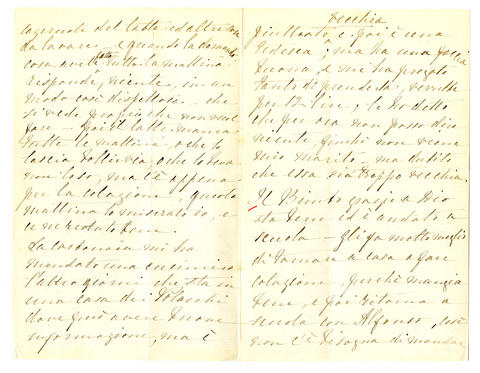 casseruole del latte ed altre cose
da lavare e quando la domando
cosa avete fatto tutta la mattina
risponde, niente, in un
modo così dispettoso che
si vede proprio che non vuol
fare - Poi il latte manca
tutte le mattine, o che lo
lascia
non lo so, ma c'è appena
per la colazione, questa
mattina lo misurato io, e
ce ne
La mi ha
mandato una cuciniera
l'altro giorno che sta in
una casa dei
dove può avere buone
informazione, ma è
vecchia
piuttosto e poi è una
tedesca; ma ha una faccia
buona, e mi ha pregato
tanto di prenderla, verrebbe
per 12 lire; le ho detto
che per ora non posso dire
niente, finchè non viene
mio marito - ma dubito
che essa sia troppo vecchia.
Il Bimbo grazie a Dio
sta bene ed è andato a
scuola - gli fa molto meglio
di tornare a casa a fare
colazione, perchè mangia
bene, e poi ritorna a
scuola con Alfonso, così
non c'è bisogno di mandar